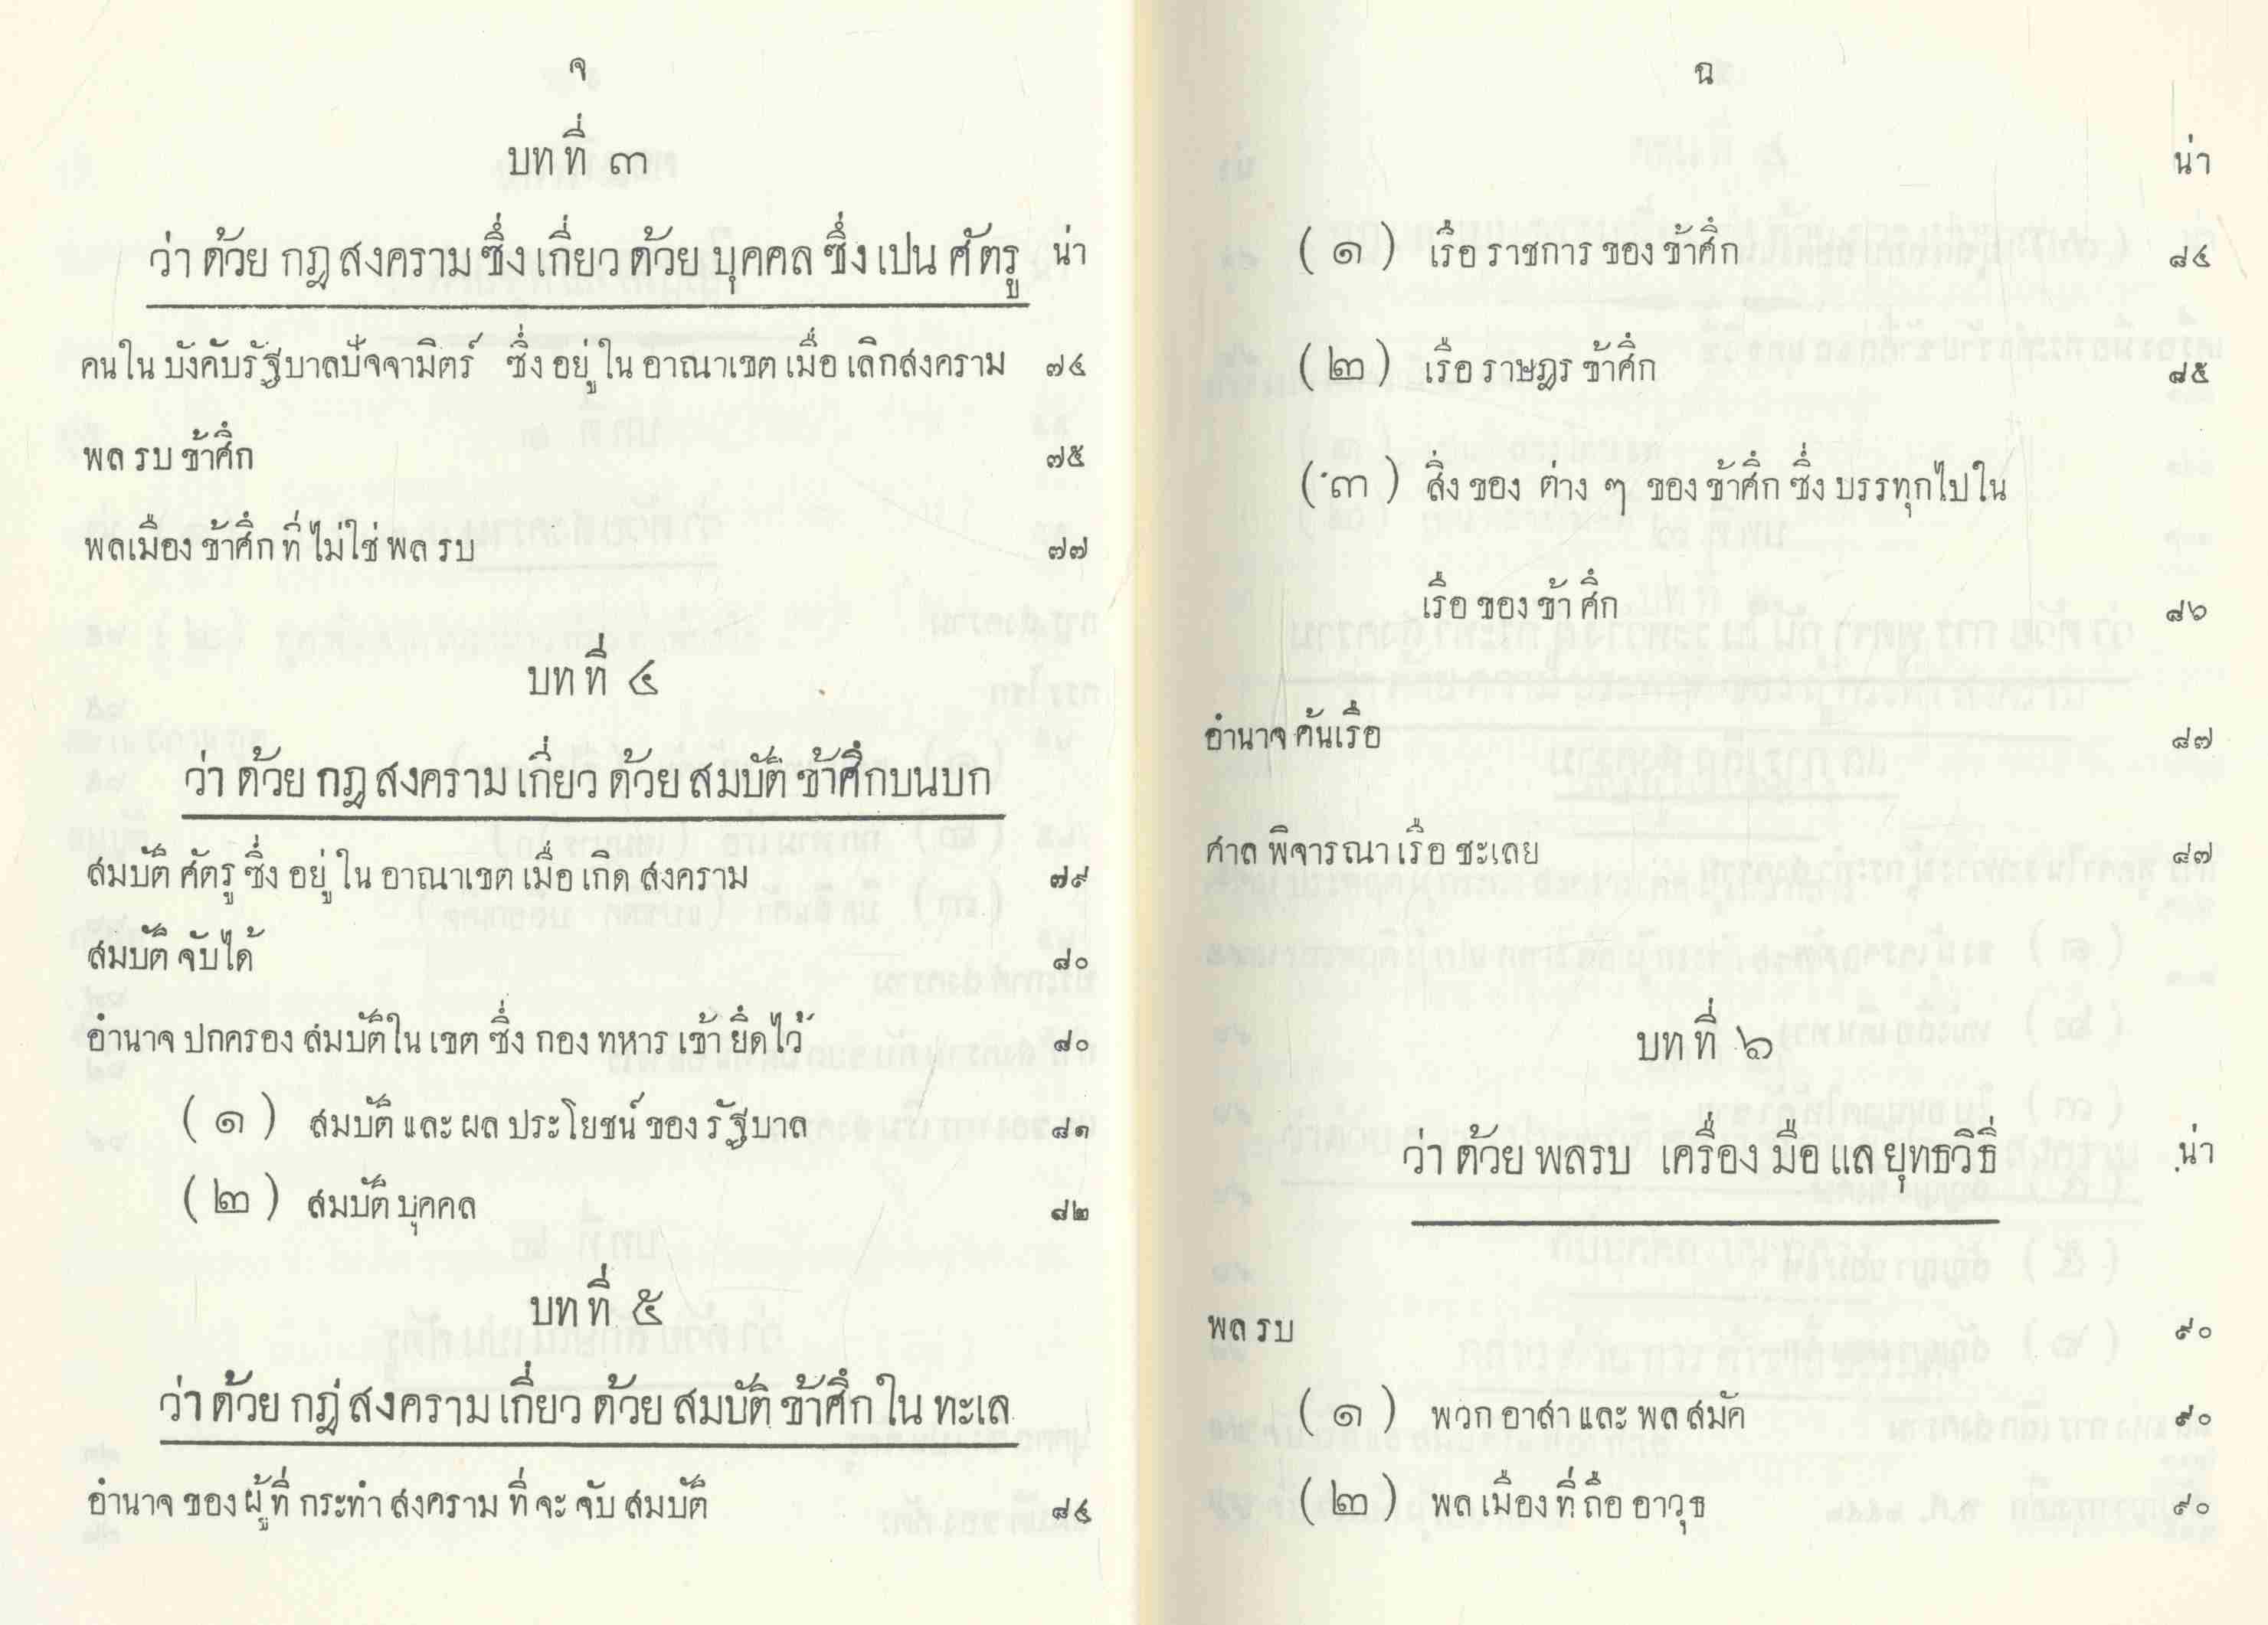 จ
บทที่ ๓
ว่าด้วย กฎสงคราม ซึ่งเกี่ยวด้วย บุคคล ซึ่งเปน ศัตรู น่า
คนใน บังคับรัฐบาลปัจจามิตร์ ซึ่งอยู่ใน อาณาเขต เมื่อ เลิกสงคราม ๗๔
พลรบ ข้าศึก ๗๕
พลเมือง ข้าศึก ที่ไม่ใช่ พลรบ ๗๗
บทที่ ๔
ว่าด้วย กฎสงคราม เกี่ยวด้วย สมบัติ ข้าศึกบนบก
สมบัติ ศัตรู ซึ่งอยู่ใน อาณาเขต เมื่อ เกิด สงคราม ๗๙
สมบัติ จับได้ ๘๐
อำนาจ ปกครอง สมบัติใน เขต ซึ่ง กองทหาร เข้า ยึดไว้ ๘๐
(๑) สมบัติ และ ผลประโยชน์ ของ รัฐบาล ๘๑
(๒) สมบัติ บุคคล ๘๒
บทที่ ๕
ว่าด้วย กฎสงคราม เกี่ยวด้วย สมบัติ ข้าศึก ใน ทะเล
อำนาจ ของ ผู้ที่ กระทำ สงคราม ที่จะ จับ สมบัติ ๘๔
ฉ
น่า
(๑) เรือ ราชการ ของ ข้าศึก ๘๔
(๒) เรือ ราษฎร ข้าศึก ๘๕
(๓) สิ่งของ ต่าง ๆ ของ ข้าศึก ซึ่ง บรรทุกไปใน
เรือ ของ ข้าศึก ๘๖
อำนาจ ค้นเรือ ๘๗
ศาล พิจารณา เรือ ชะเลย ๘๗
บทที่ ๖
ว่าด้วย พลรบ เครื่อง มือ แล ยุทธวิธี น่า
พลรบ ๙๐
(๑) พวก อาสา และ พล สมัค ๙๐
(๒) พลเมือง ที่ ถือ อาวุธ ๙๐